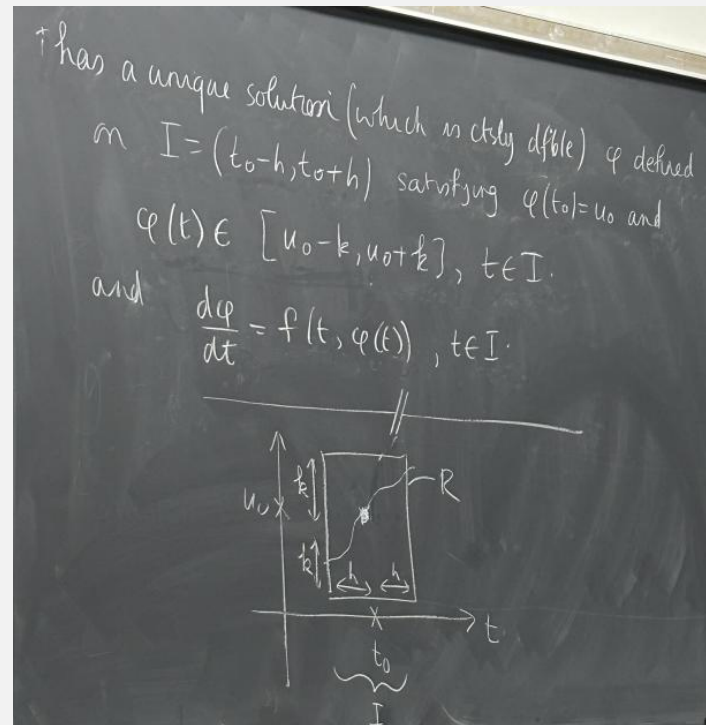 ↑ has a unique solution (which is ctsly dfble) φ defined
on I = (t₀-h, t₀+h) satisfying φ(t₀) = u₀ and
φ(t) ∈ [u₀-k, u₀+k], t ∈ I.
and dφ/dt = f(t, φ(t)), t ∈ I.
k
R
u₀
k
h h
t
t₀
I